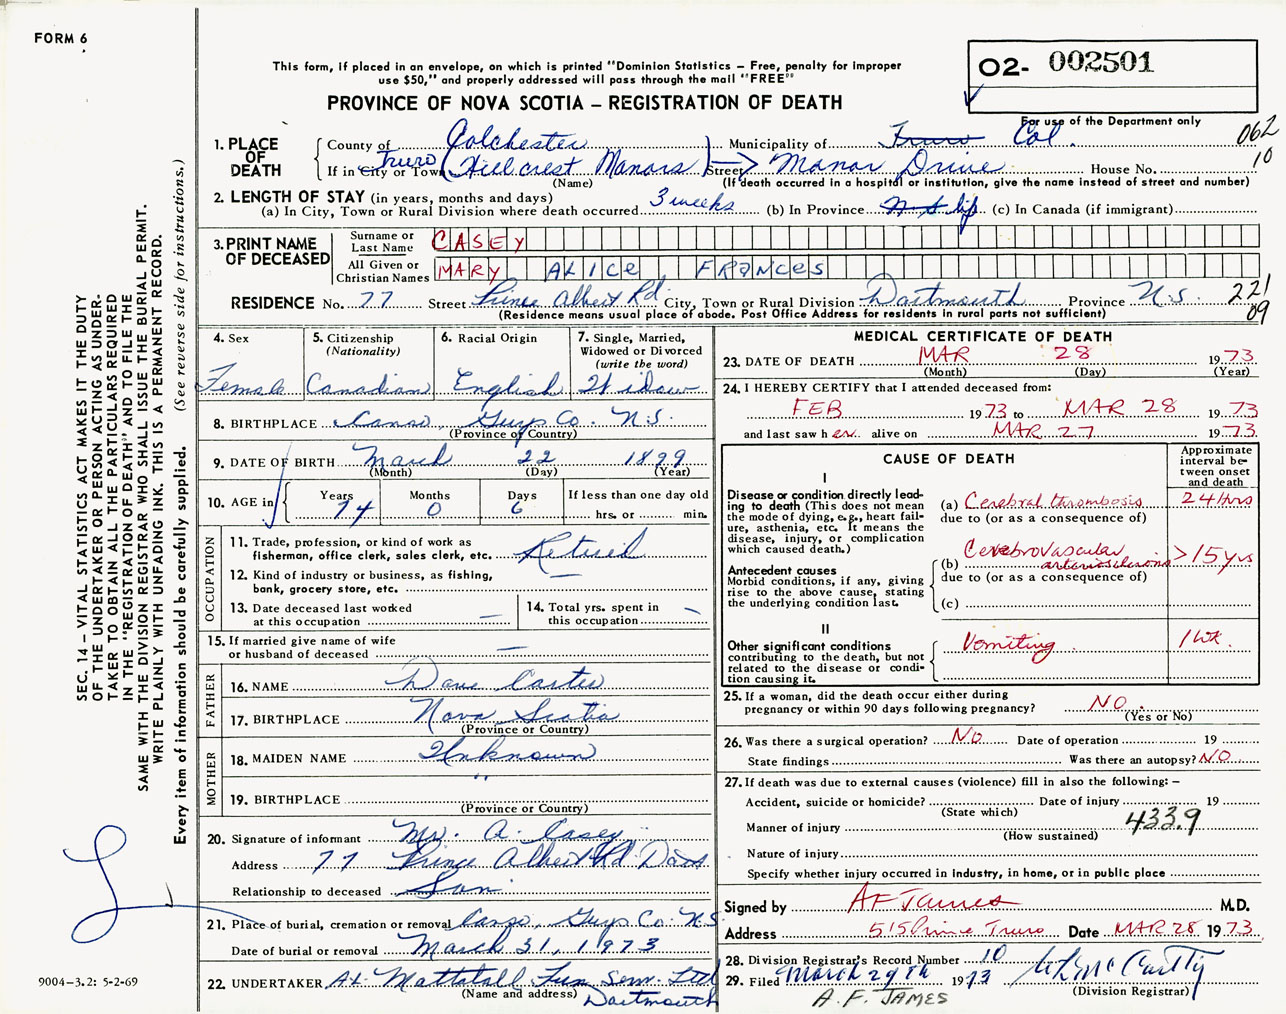 FORM 6
This form, if placed in an envelope, on which is printed "Dominion Statistics – Free, penalty for improper
use $50," and properly addressed will pass through the mail "FREE"
PROVINCE OF NOVA SCOTIA – REGISTRATION OF DEATH
O2- 002501
For use of the Department only
062
10
1. PLACE OF DEATH
County of Colchester Municipality of Truro Col.
If in City or Town Truro (Hillcrest Manors) Street Manor Drive House No.
(Name) (If death occurred in a hospital or institution, give the name instead of street and number)
2. LENGTH OF STAY (in years, months and days)
(a) In City, Town or Rural Division where death occurred 3 weeks (b) In Province N S life (c) In Canada (if immigrant)
3. PRINT NAME OF DECEASED
Surname or Last Name CASEY
All Given or Christian Names MARY ALICE FRANCES
RESIDENCE No. 77 Street Prince Albert Rd City, Town or Rural Division Dartmouth Province N.S.
221
09
(Residence means usual place of abode. Post Office Address for residents in rural parts not sufficient)
4. Sex
Female
5. Citizenship
(Nationality)
Canadian
6. Racial Origin
English
7. Single, Married,
Widowed or Divorced
(write the word)
Widow
8. BIRTHPLACE Canso, Guys Co. N.S.
(Province or Country)
9. DATE OF BIRTH March 22 1899
(Month) (Day) (Year)
10. AGE in Years Months Days If less than one day old
74 0 6 hrs. or min.
OCCUPATION
11. Trade, profession, or kind of work as
fisherman, office clerk, sales clerk, etc. Retired
12. Kind of industry or business, as fishing,
bank, grocery store, etc. —
13. Date deceased last worked
at this occupation —
14. Total yrs. spent in
this occupation —
15. If married give name of wife
or husband of deceased —
FATHER
16. NAME Dave Carter
17. BIRTHPLACE Nova Scotia
(Province or Country)
MOTHER
18. MAIDEN NAME Unknown
19. BIRTHPLACE "
(Province or Country)
20. Signature of informant Mr. A. Casey
Address 77 Prince Albert Rd Dart
Relationship to deceased Son
21. Place of burial, cremation or removal Canso, Guys Co. N.S.
Date of burial or removal March 31, 1973
22. UNDERTAKER Mattatall Fun Serv. Ltd
(Name and address) Dartmouth
MEDICAL CERTIFICATE OF DEATH
23. DATE OF DEATH MAR 28 1973
(Month) (Day) (Year)
24. I HEREBY CERTIFY that I attended deceased from:
FEB 1973 to MAR 28 1973
and last saw her alive on MAR 27 1973
CAUSE OF DEATH
Approximate
interval be-
tween onset
and death
I
Disease or condition directly lead-
ing to death (This does not mean
the mode of dying, e.g., heart fail-
ure, asthenia, etc. It means the
disease, injury, or complication
which caused death.)
(a) Cerebral thrombosis 24 Hrs
due to (or as a consequence of)
Antecedent causes
Morbid conditions, if any, giving
rise to the above cause, stating
the underlying condition last.
(b) Cerebrovascular arteriosclerosis >15 yrs
due to (or as a consequence of)
(c)
II
Other significant conditions
contributing to the death, but not
related to the disease or condi-
tion causing it.
Vomiting 1 wk.
25. If a woman, did the death occur either during
pregnancy or within 90 days following pregnancy? NO.
(Yes or No)
26. Was there a surgical operation? NO Date of operation 19
State findings Was there an autopsy? NO
27. If death was due to external causes (violence) fill in also the following: –
Accident, suicide or homicide? Date of injury 19
(State which)
Manner of injury 433.9
(How sustained)
Nature of injury
Specify whether injury occurred in industry, in home, or in public place
Signed by AF James M.D.
Address 515 Prince Truro Date MAR 28 1973
28. Division Registrar's Record Number 10
29. Filed March 29th 1973 McCarthy
(Division Registrar)
A. F. JAMES
SEC. 14 – VITAL STATISTICS ACT MAKES IT THE DUTY
OF THE UNDERTAKER OR PERSON ACTING AS UNDER-
TAKER TO OBTAIN ALL THE PARTICULARS REQUIRED
IN THE "REGISTRATION OF DEATH" AND TO FILE THE
SAME WITH THE DIVISION REGISTRAR WHO SHALL ISSUE THE BURIAL PERMIT.
WRITE PLAINLY WITH UNFADING INK. THIS IS A PERMANENT RECORD.
Every item of information should be carefully supplied. (See reverse side for instructions.)
9004–3.2: 5-2-69